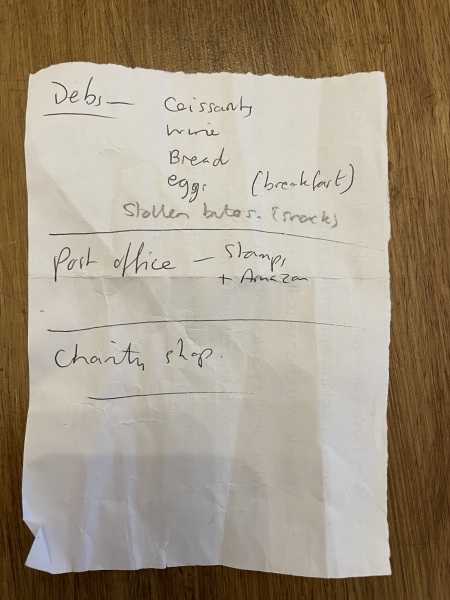 Debs - Coissants
wine
Bread
eggs (breakfast)
Stollen bites. (snack)
Post office - Stamps
+ Amazon
Charity shop.